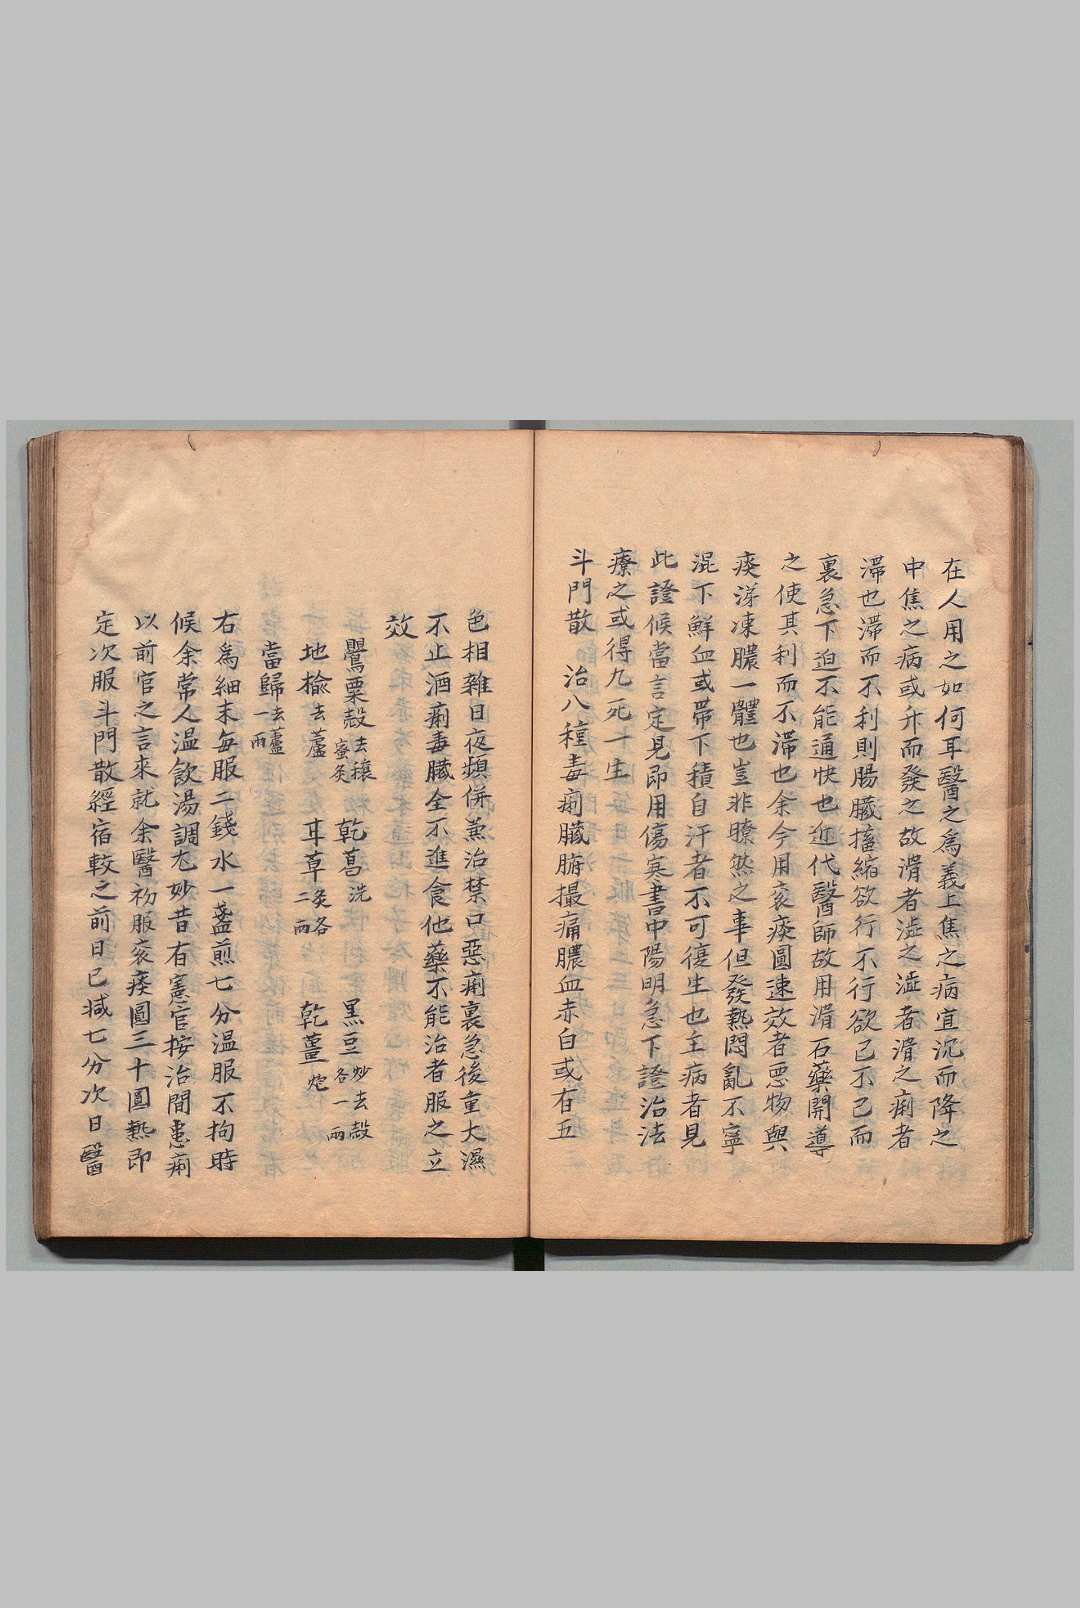 在人用之如何耳醫之為義上焦之病宜沉而降之
中焦之病或升而發之故滑者澁之澁者滑之痢者
滯也滯而不利則腸臟搐縮欲行不行欲已不已而
裏急下迫不能通快也近代醫師故用滑石藥開導
之使其利而不滯也余今用衮痰圓速效者惡物與
痰涕凍膿一體也豈非曉然之事但發熱悶亂不寧
混下鮮血或帶下積自汗者不可復生也主病者見
此證候當言定見即用傷寒書中陽明急下證治法
療之或得九死一生
斗門散 治八種毒痢臟腑撮痛膿血赤白或有五
色相雜日夜頻併兼治禁口惡痢裏急後重大濕
不止酒痢毒臟全不進食他藥不能治者服之立
效
罌粟殼去穰蜜炙 乾葛洗 黑豆炒去殼各一兩
地榆去蘆 耳草炙各二兩 乾薑炮
當歸去蘆一兩
右為細末每服二錢水一盞煎七分温服不拘時
候余常人温飲湯調尤妙昔有憲官按治間患痢
以前官之言來就余醫初服衮痰圓三十圓熱即
定次服斗門散經宿較之前日已減七分次日醫